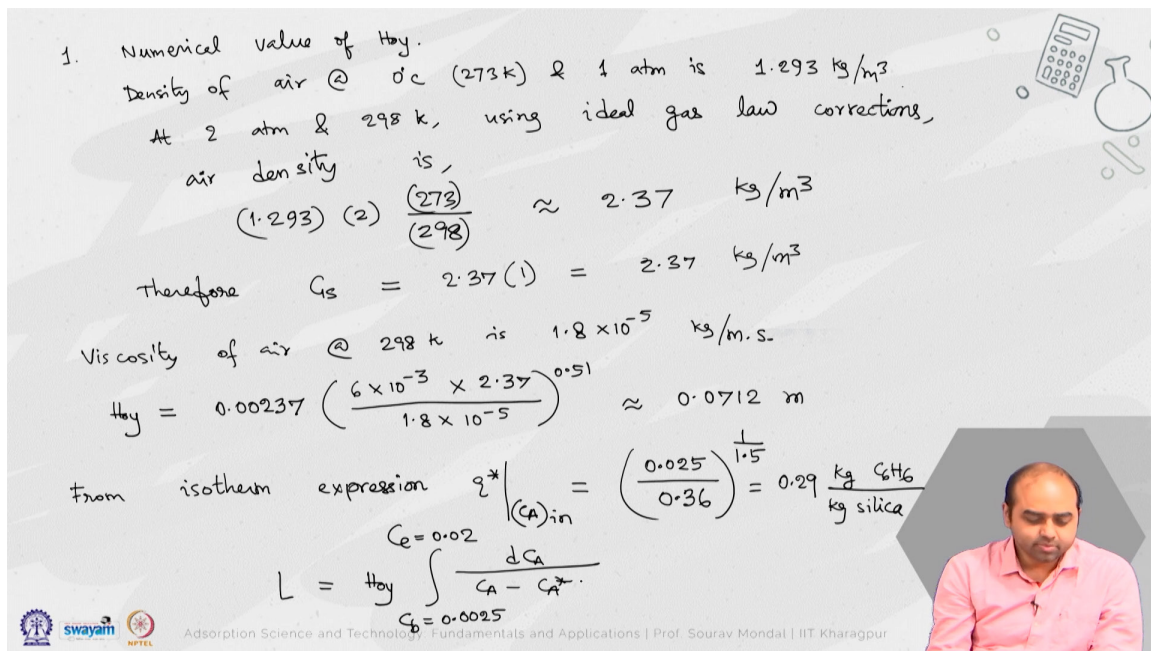 1. Numerical value of Hoy.
Density of air @ 0°C (273K) & 1 atm is 1.293 kg/m³
At 2 atm & 298 K, using ideal gas law corrections,
air density is,
(1.293) (2) (273)/(298) ≈ 2.37 kg/m³
Therefore Gs = 2.37 (1) = 2.37 kg/m³
Viscosity of air @ 298 K is 1.8 × 10⁻⁵ kg/m.s.
Hoy = 0.00237 (6 × 10⁻³ × 2.37 / 1.8 × 10⁻⁵)^0.51 ≈ 0.0712 m
From isotherm expression q*|(CA)in = (0.025/0.36)^(1/1.5) = 0.29 kg C6H6 / kg silica
Ce = 0.02
L = Hoy ∫ dCA / CA – CA*.
Cb = 0.0025
swayam
NPTEL
Adsorption Science and Technology: Fundamentals and Applications | Prof. Sourav Mondal | IIT Kharagpur